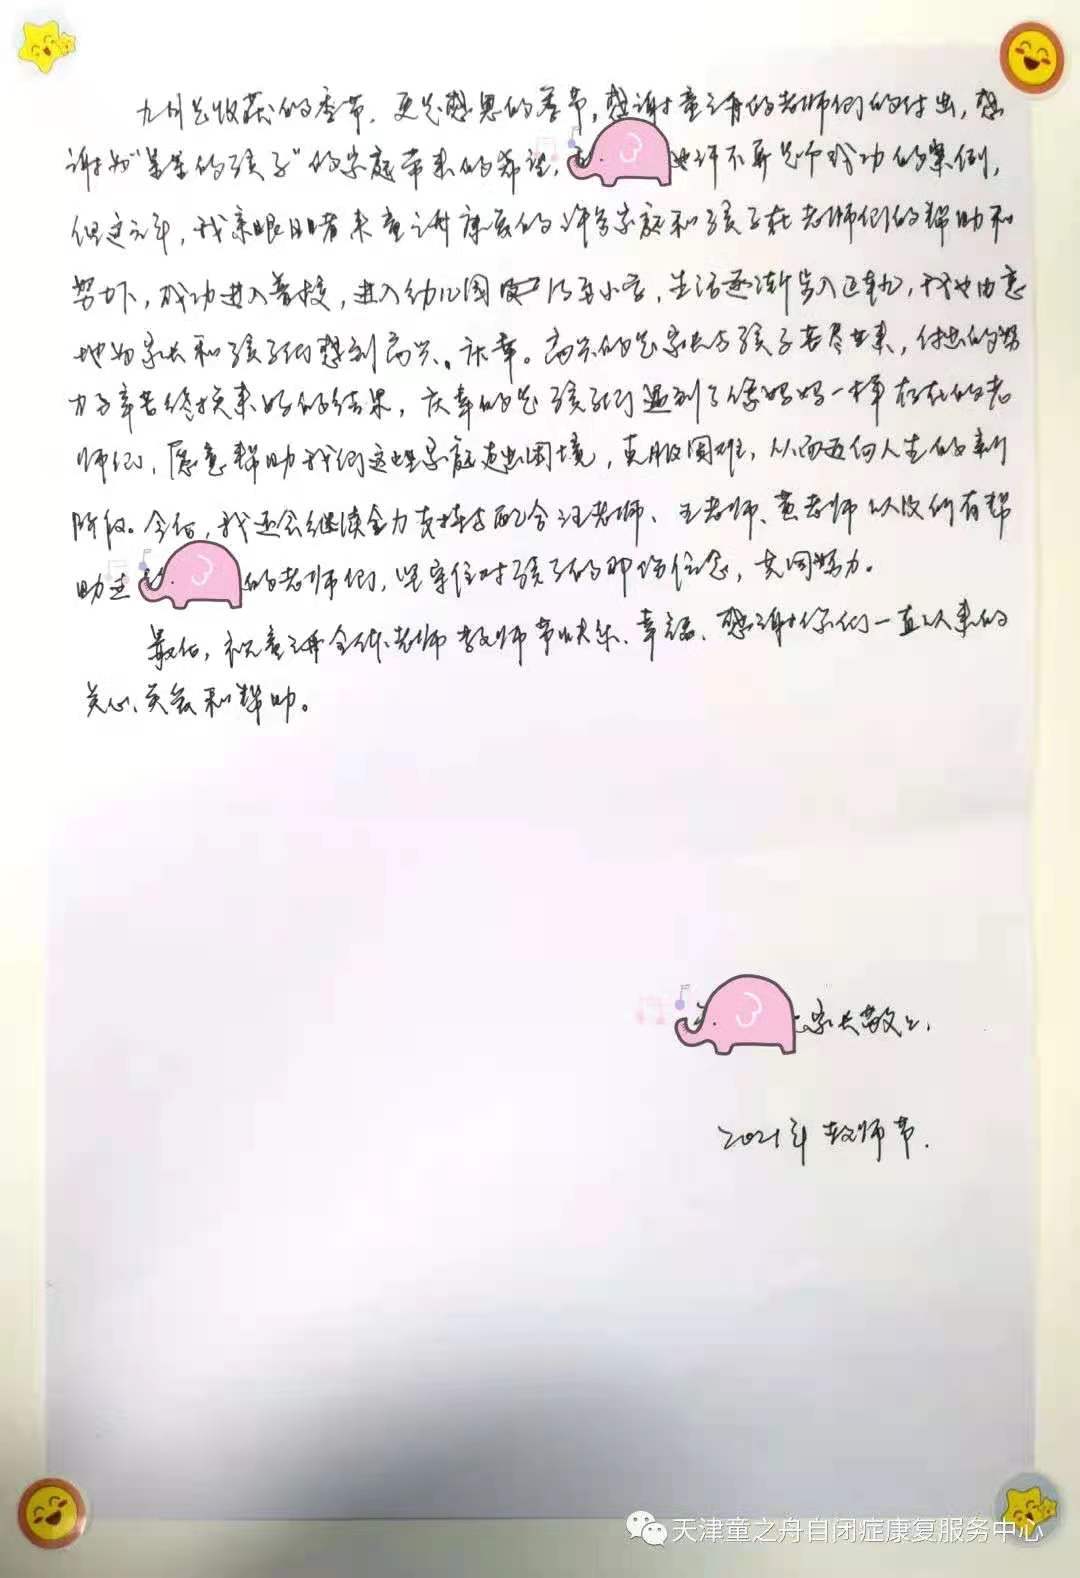 九月是收获的季节，更是感恩的季节，感谢童之舟的老师们的付出，感
谢为“星星的孩子”的家庭带来的希望，也许不算是个成功的案例，
但这三年，我亲眼目睹来童之舟康复的许多家庭和孩子在老师们的帮助和
努力下，成功进入普校，进入幼儿园小学，生活逐渐步入正轨，我也由衷
地为家长和孩子们感到高兴、庆幸。高兴的是家长与孩子苦尽甘来，付出的努
力与辛苦终换来好的结果，庆幸的是孩子们遇到了像妈妈一样存在的老
师们，愿意帮助我们这些家庭走出困境，克服困难，从而迈向人生的新
阶段。今后，我还会继续全力支持与配合汪老师、王老师、黄老师以及所有帮
助过的老师们，坚守住对孩子的那份信念，共同努力。
最后，祝童之舟全体老师教师节快乐、幸福、感谢你们一直以来的
关心、关爱和帮助。
家长敬上
2021年教师节.
天津童之舟自闭症康复服务中心